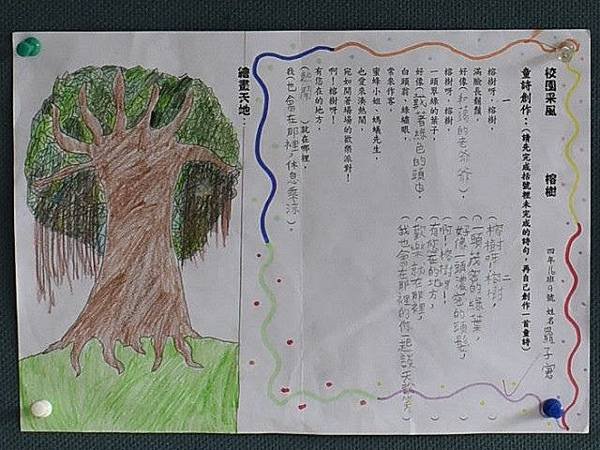 校園采風　榕樹　四年16班9號 姓名
童詩創作：(請先完成括號裡未完成的詩句，再自己創作一首童詩)
一
榕樹呀，榕樹，
滿臉長鬍鬚，
好像(和藹的老爺爺)，
榕樹呀，榕樹，
一頭翠綠的葉子，
好像(戴著綠色的頭巾，
白頭翁、綠繡眼，
常來作客，
蜜蜂小姐、螞蟻先生
也愛來湊熱鬧，
宛如開著場場的歡樂派對！
啊！榕樹呀！
有您在的地方，
(熱鬧)就在哪裡，
我(也會在那裡，休息乘涼)。
二
(榕樹呀！榕樹，)
(一頭茂密的綠葉，)
(好像一頭濃密的頭髮，)
(啊！榕樹呀！)
(有您在的地方，)
(歡樂就在那裡，)
(我也會在那裡和你一起談天歡笑)
繪畫天地：